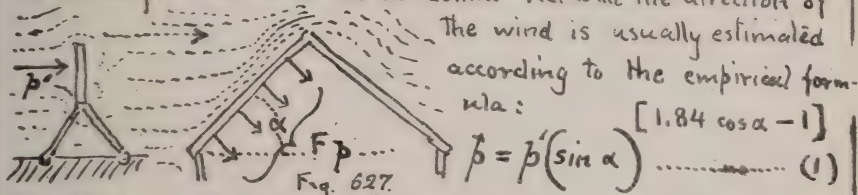 the direction of
the wind is usually estimated
according to the empirical form-
ula:
[1.84 cosα − 1]
p = p'(sin α) ............ (1)
p'
α
F p
Fig. 627.